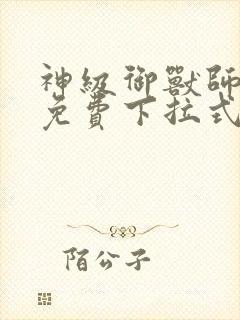 神級御獸師
免費下拉式
陌公子